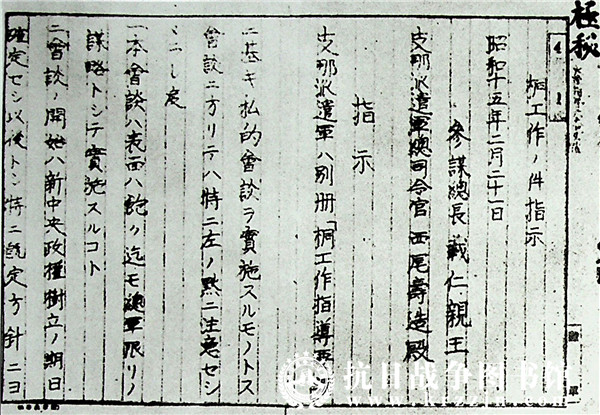 極秘
桐工作ノ件指示
昭和十五年二月二十一日
參謀總長 載仁親王
支那派遣軍總司令官 西尾壽造殿
指示
支那派遣軍ハ別册「桐工作指導要
ニ基キ私的會談ヲ實施スルモノトス
會談ニ方リテハ特ニ左ノ點ニ注意セシ
ミニシ度
一本會談ハ表面ハ飽ク迄モ總軍限リノ
謀略トシテ實施スルコト
二會談ノ開始ハ新中央政權樹立ノ期日
確定セシ以後トシ特ニ既定方針ニヨ
陸軍
抗日战争图书馆
www.krzzjn.com